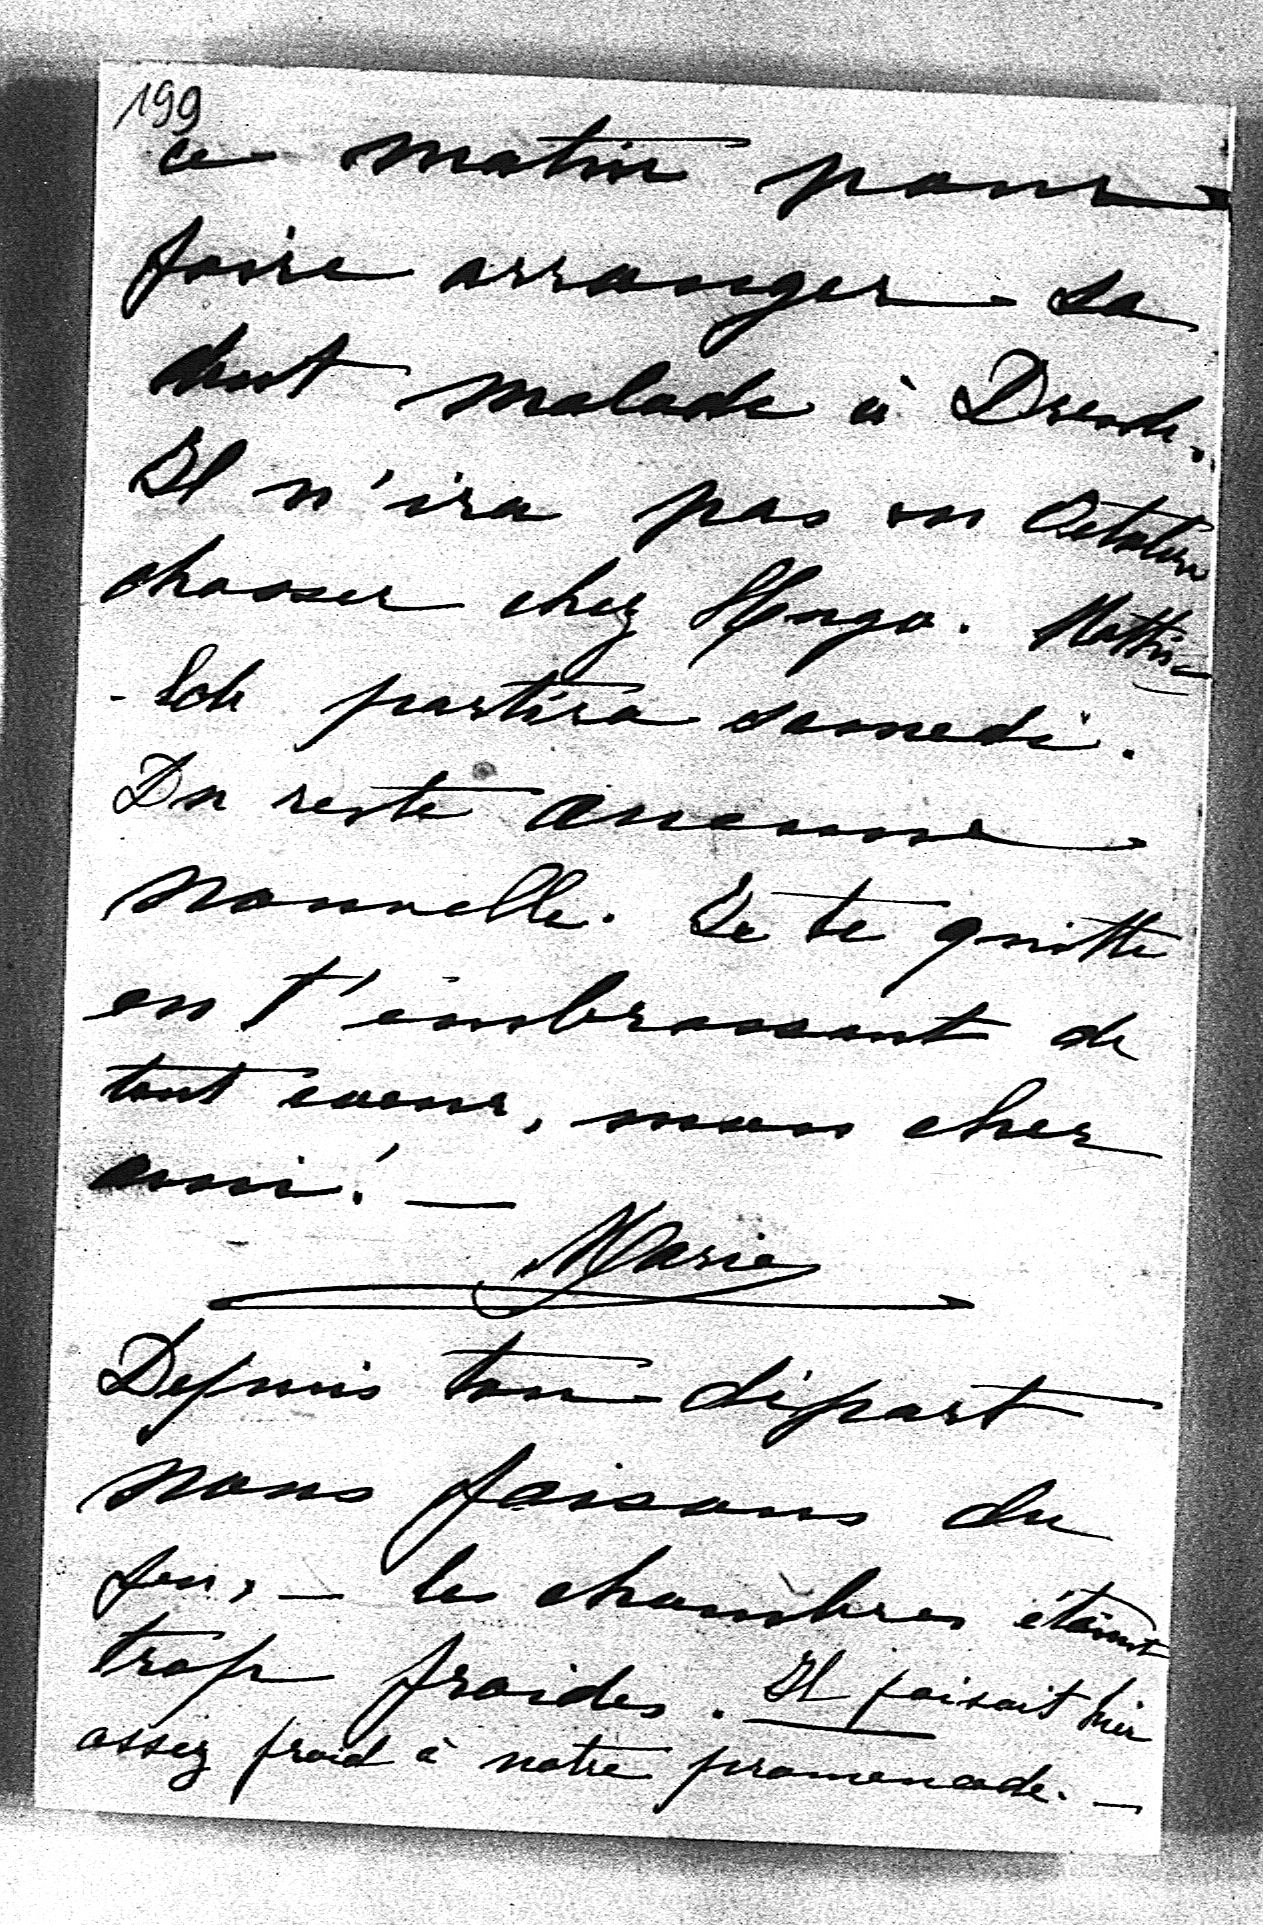 199
ce matin pour
faire arranger sa
dent malade à Dresde.
Il n'ira pas en Octobre
chasser chez Hugo. Mathil-
-de partira samedi.
Du reste aucune
nouvelle. Je te quitte
en t'embrassant de
tout coeur, mon cher
ami! —
Marie
Depuis ton départ
nous faisons du
feu, — les chambres étaient
trop froides. Il faisait hier
assez froid à notre promenade. —